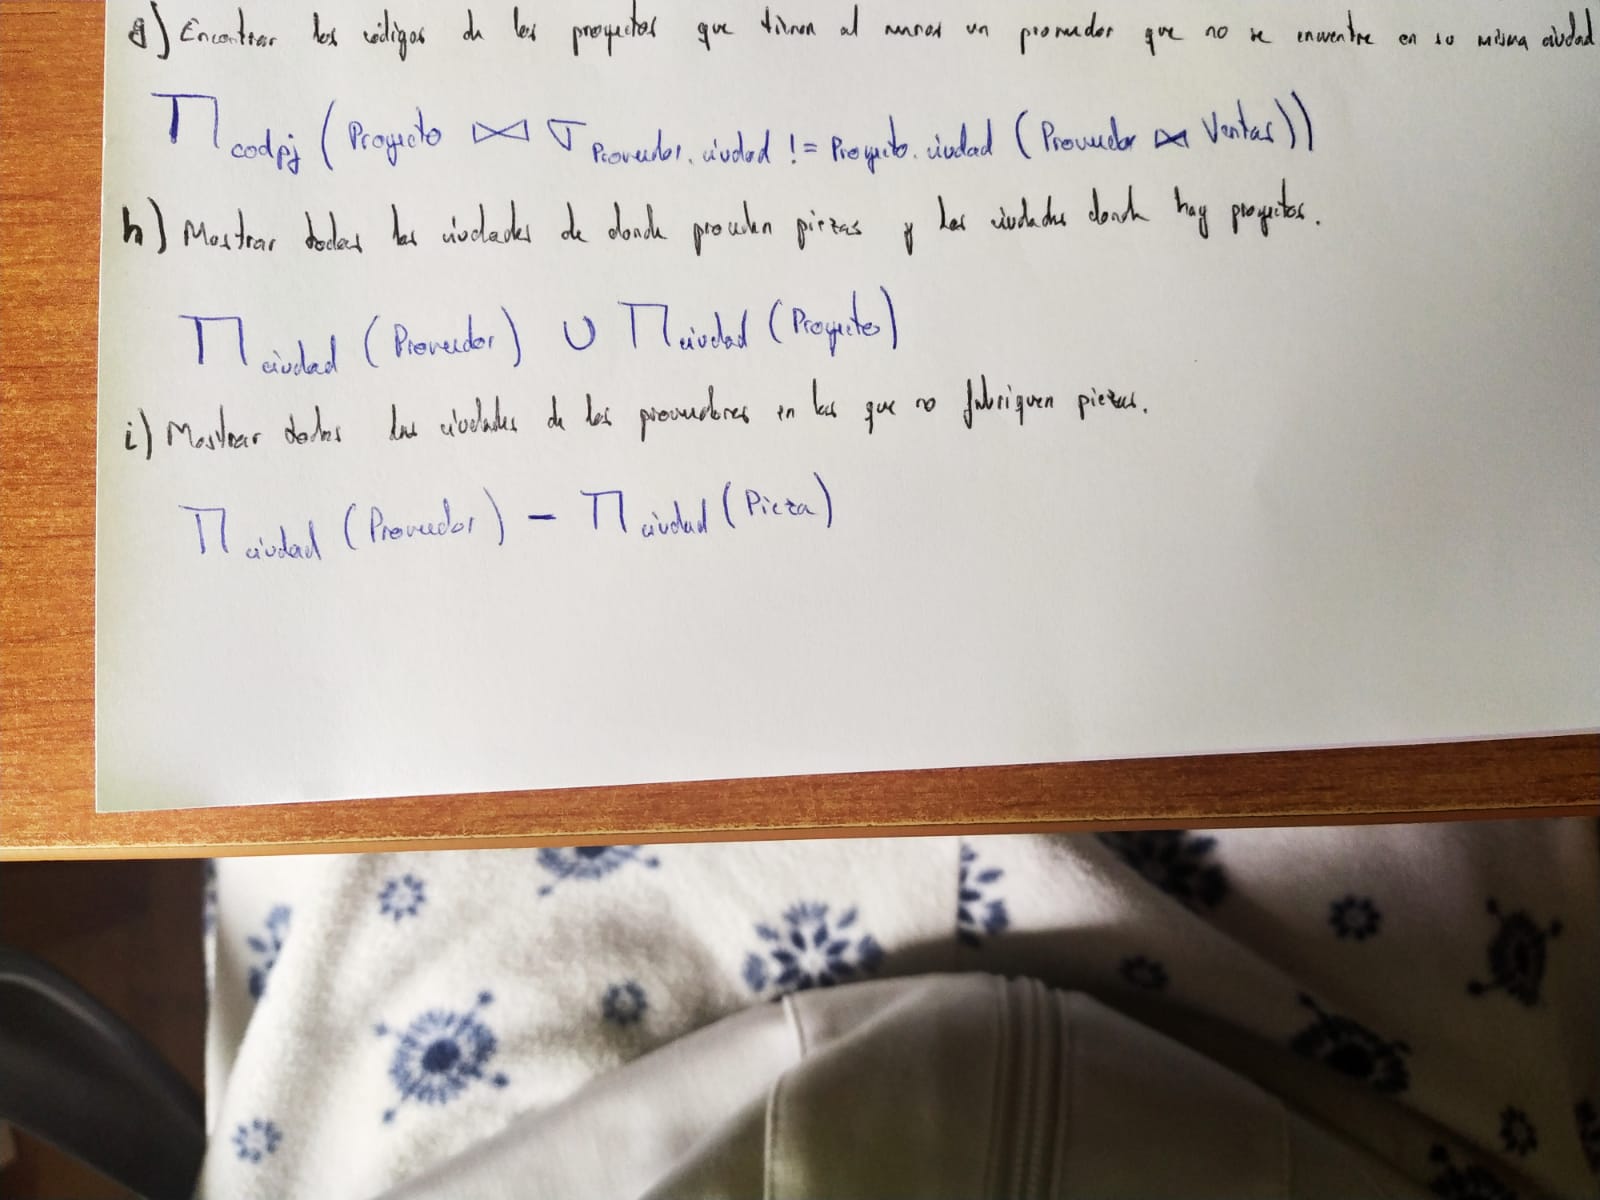 g) Encontrar los códigos de los proyectos que tienen al menos un proveedor que no se encuentre en su misma ciudad
Π codpj (Proyecto ⋈ σ Proveedor.ciudad != Proyecto.ciudad (Proveedor ⋈ Ventas))
h) Mostrar todas las ciudades de donde proceden piezas y las ciudades donde hay proyectos.
Π ciudad (Proveedor) ∪ Π ciudad (Proyecto)
i) Mostrar todas las ciudades de los proveedores en las que no fabriquen piezas.
Π ciudad (Proveedor) - Π ciudad (Pieza)